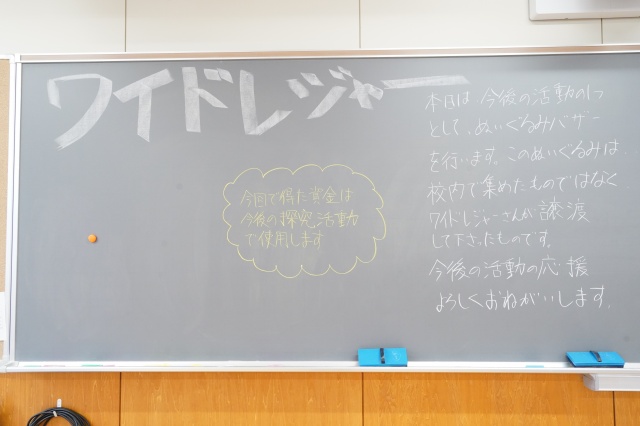 ワイドレジャー
今回で得た資金は
今後の探究活動
で使用します
本日は今後の活動の1つ
として、ぬいぐるみバザー
を行います。このぬいぐるみは
校内で集めたものではなく
ワイドレジャーさんが譲渡
して下さったものです。
今後の活動の応援
よろしくおねがいします。